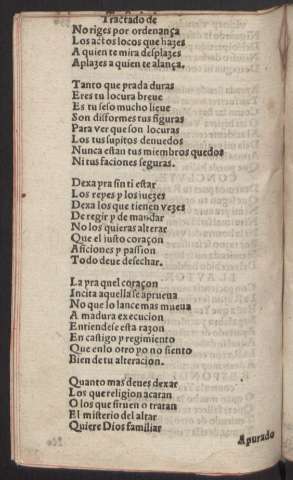 Tractado de
No riges por ordenança
Los actos locos que hazes
A quien te mira desplazes
Aplazes a quien te alança.
Tanto que prada duras
Eres tu locura breue
Es tu seso mucho lieue
Son disformes tus figuras
Para ver que son locuras
Los tus supitos denuedos
Nunca estan tus miembros quedos
Ni tus faciones seguras.
Dexa pra sin ti estar
Los reyes y los juezes
Dexa los que tienen vezes
De regir y de mandar
No los quieras alterar
Que el justo coraçon
Aficiones y passion
Todo deue desechar.
La pra quel coraçon
Incita aquella se aprueua
No que lo lance mas mueua
A madura execucion
Entiendese esta razon
En castigo y regimiento
Que enlo otro yo no siento
Bien de tu alteracion.
Quanto mas deues dexar
Los que religion acatan
O los que siruen o tratan
El misterio del altar
Quiere Dios familiar
Apurado